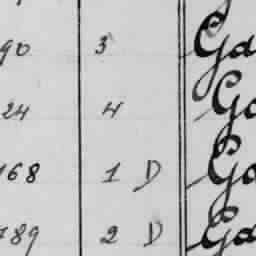 90 3 Ga
24 4 Ga
168 1 D Ga
789 2 D Ga